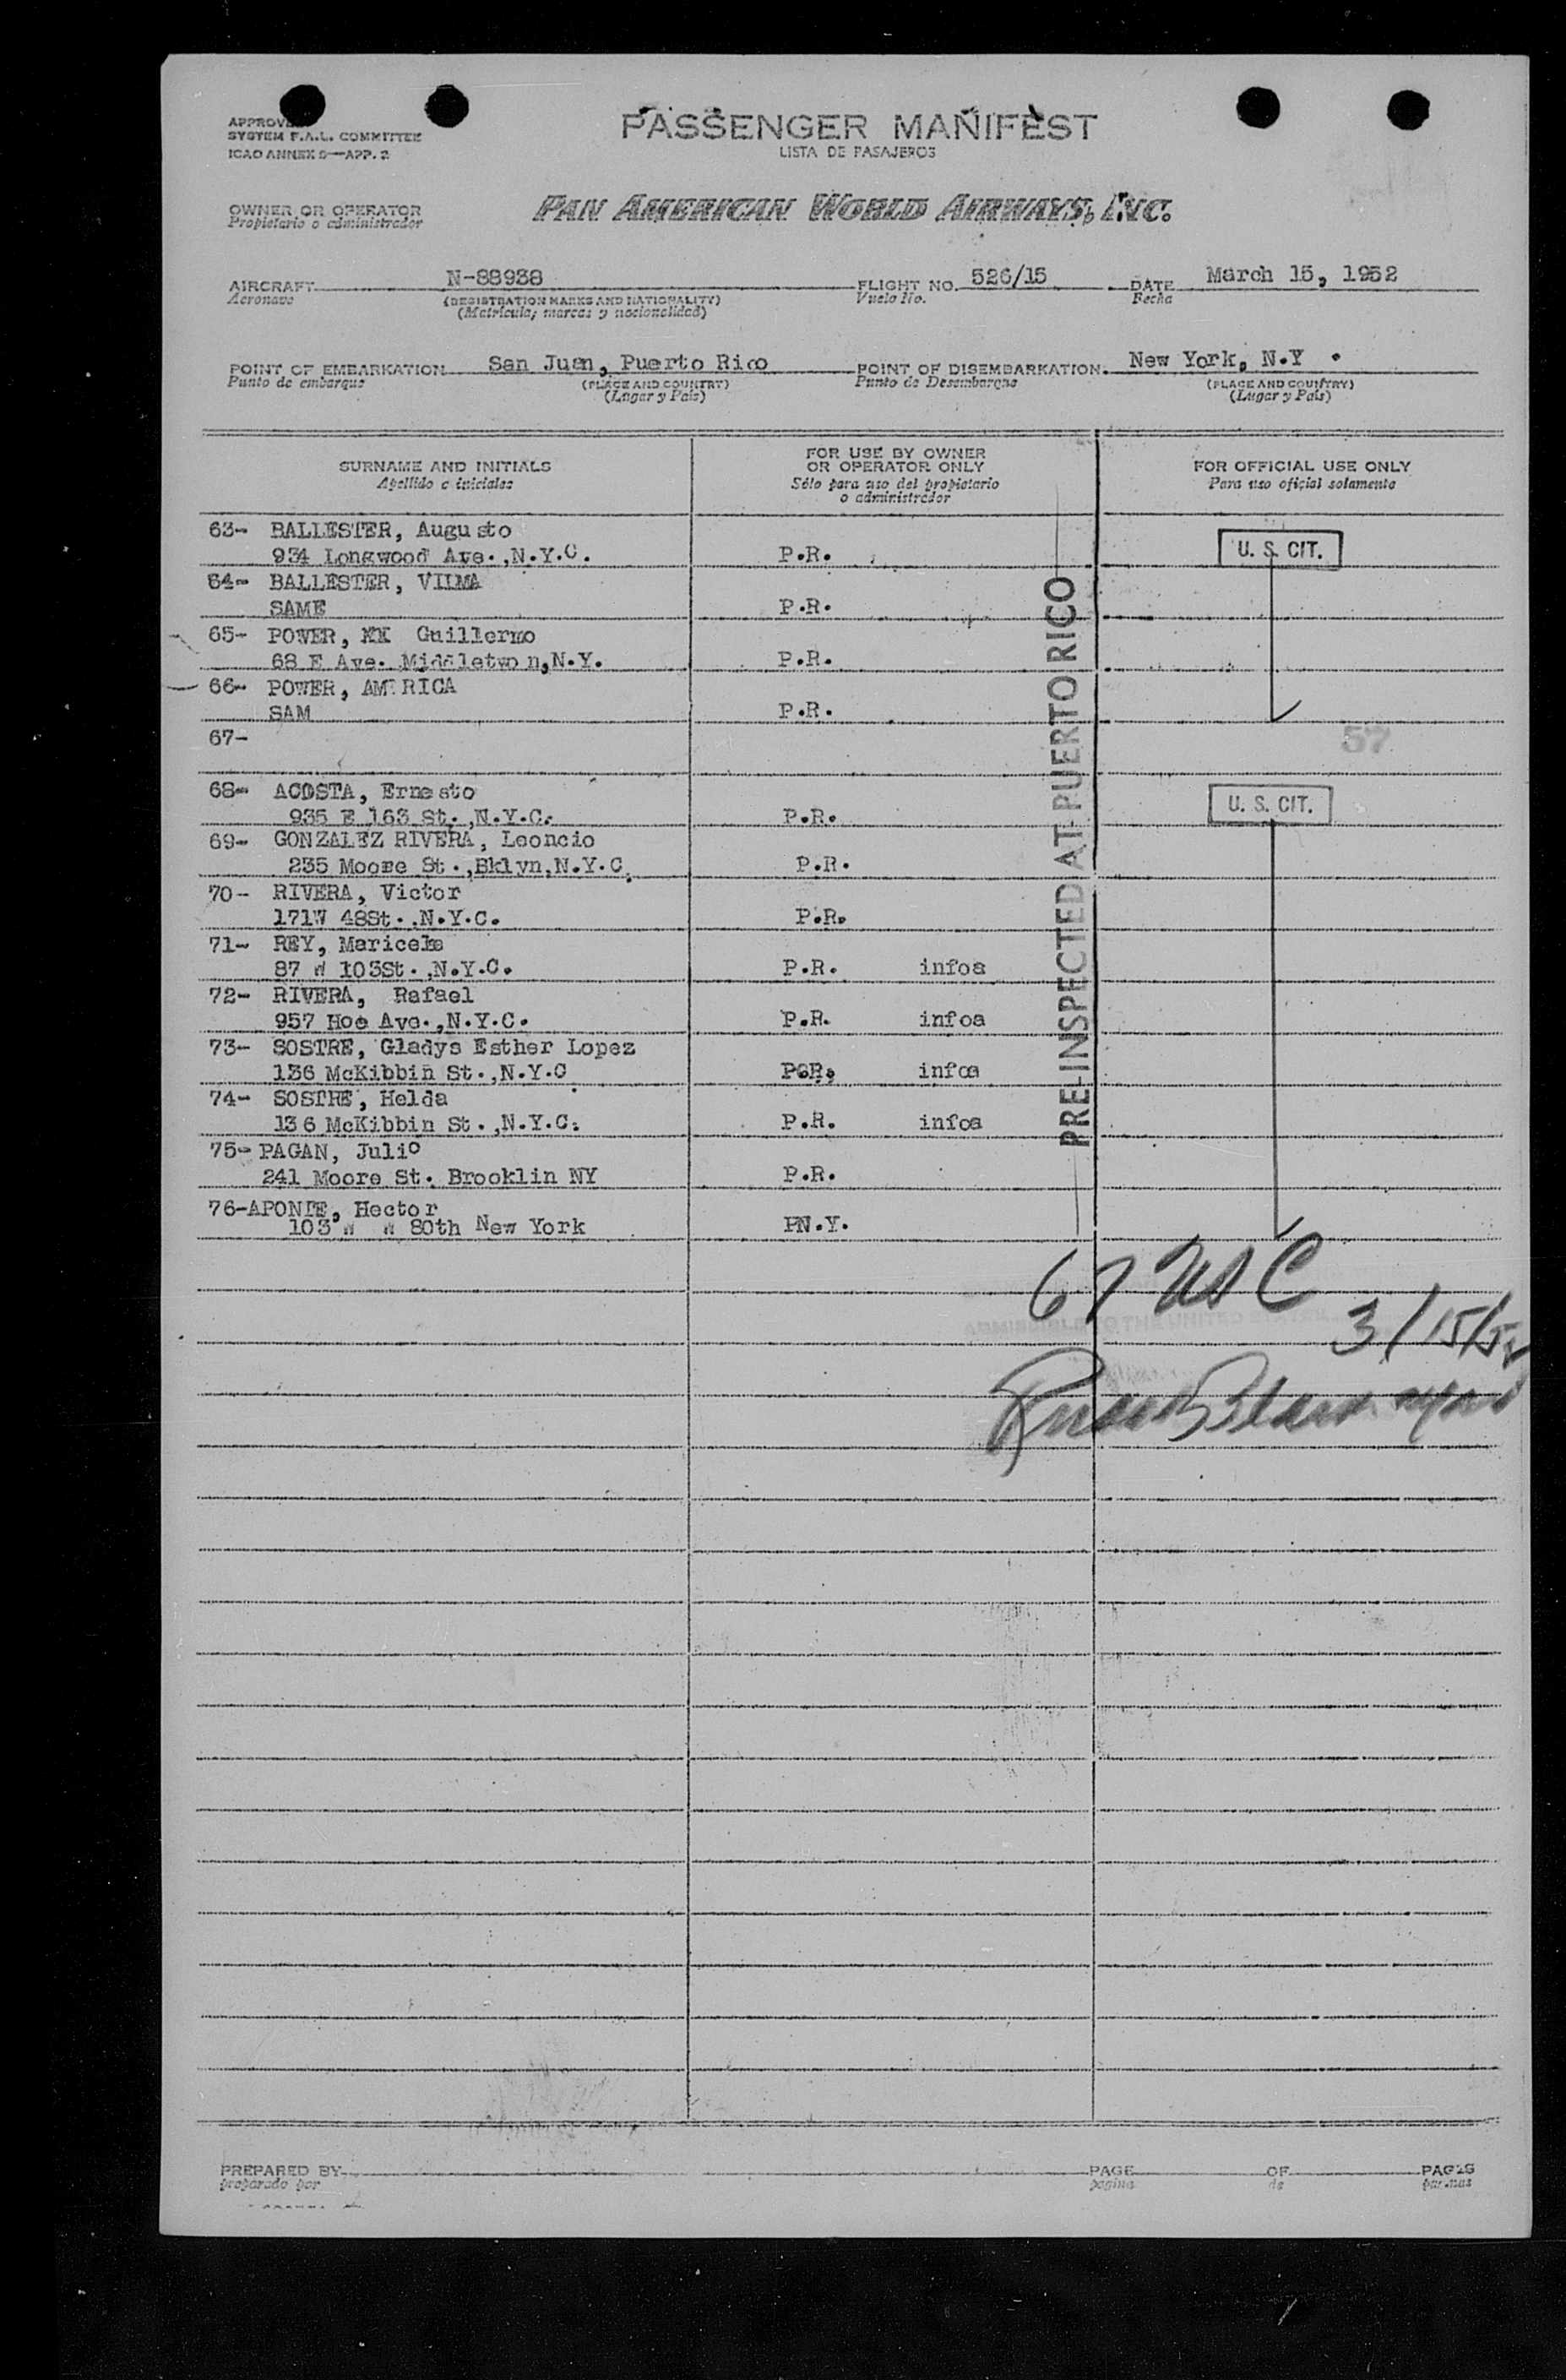 APPROVE
SYSTEM F.A.L. COMMITTEE
ICAO ANNEX 9—APP. 2
PASSENGER MANIFEST
LISTA DE PASAJEROS
OWNER OR OPERATOR
Propietario o administrador
PAN AMERICAN WORLD AIRWAYS, INC.
AIRCRAFT N-88938 FLIGHT NO. 526/15 DATE March 15, 1952
Aeronave (REGISTRATION MARKS AND NATIONALITY) Vuelo No. Fecha
(Matricula, marcas y nacionalidad)
POINT OF EMBARKATION San Juan, Puerto Rico POINT OF DISEMBARKATION New York, N.Y .
Punto de embarque (PLACE AND COUNTRY) Punto de Desembarque (PLACE AND COUNTRY)
(Lugar y País) (Lugar y País)
SURNAME AND INITIALS
Apellido e iniciales
FOR USE BY OWNER
OR OPERATOR ONLY
Sólo para uso del propietario
o administrador
FOR OFFICIAL USE ONLY
Para uso oficial solamente
63- BALLESTER, Augusto
934 Longwood Ave.,N.Y.C. P.R. U. S. CIT.
64- BALLESTER, VILMA
SAME P.R.
65- POWER, XX Guillermo
68 E Ave. Middletwo n,N.Y. P.R.
66- POWER, AM RICA
SAM P.R.
67-
57
68- ACOSTA, Ernesto
935 E 163 St.,N.Y.C. P.R. U. S. CIT.
69- GONZALEZ RIVERA, Leoncio
235 Moore St.,Bklyn,N.Y.C. P.R.
70- RIVERA, Victor
171W 48St.,N.Y.C. P.R.
71- REY, Maricela
87 W 103St.,N.Y.C. P.R. infoa
72- RIVERA, Rafael
957 Hoe Ave.,N.Y.C. P.R. infoa
73- SOSTRE, Gladys Esther Lopez
136 McKibbin St.,N.Y.C P.R. infoa
74- SOSTRE, Helda
136 McKibbin St.,N.Y.C. P.R. infoa
75- PAGAN, Julio
241 Moore St. Brooklin NY P.R.
76-APONTE, Hector
103 W W 80th New York PN.Y.
PRE-INSPECTED AT PUERTO RICO
67 US C
ADMISSIBLE TO THE UNITED STATES
3/15/52
PREPARED BY PAGE OF PAGES
preparado por pagina de paginas